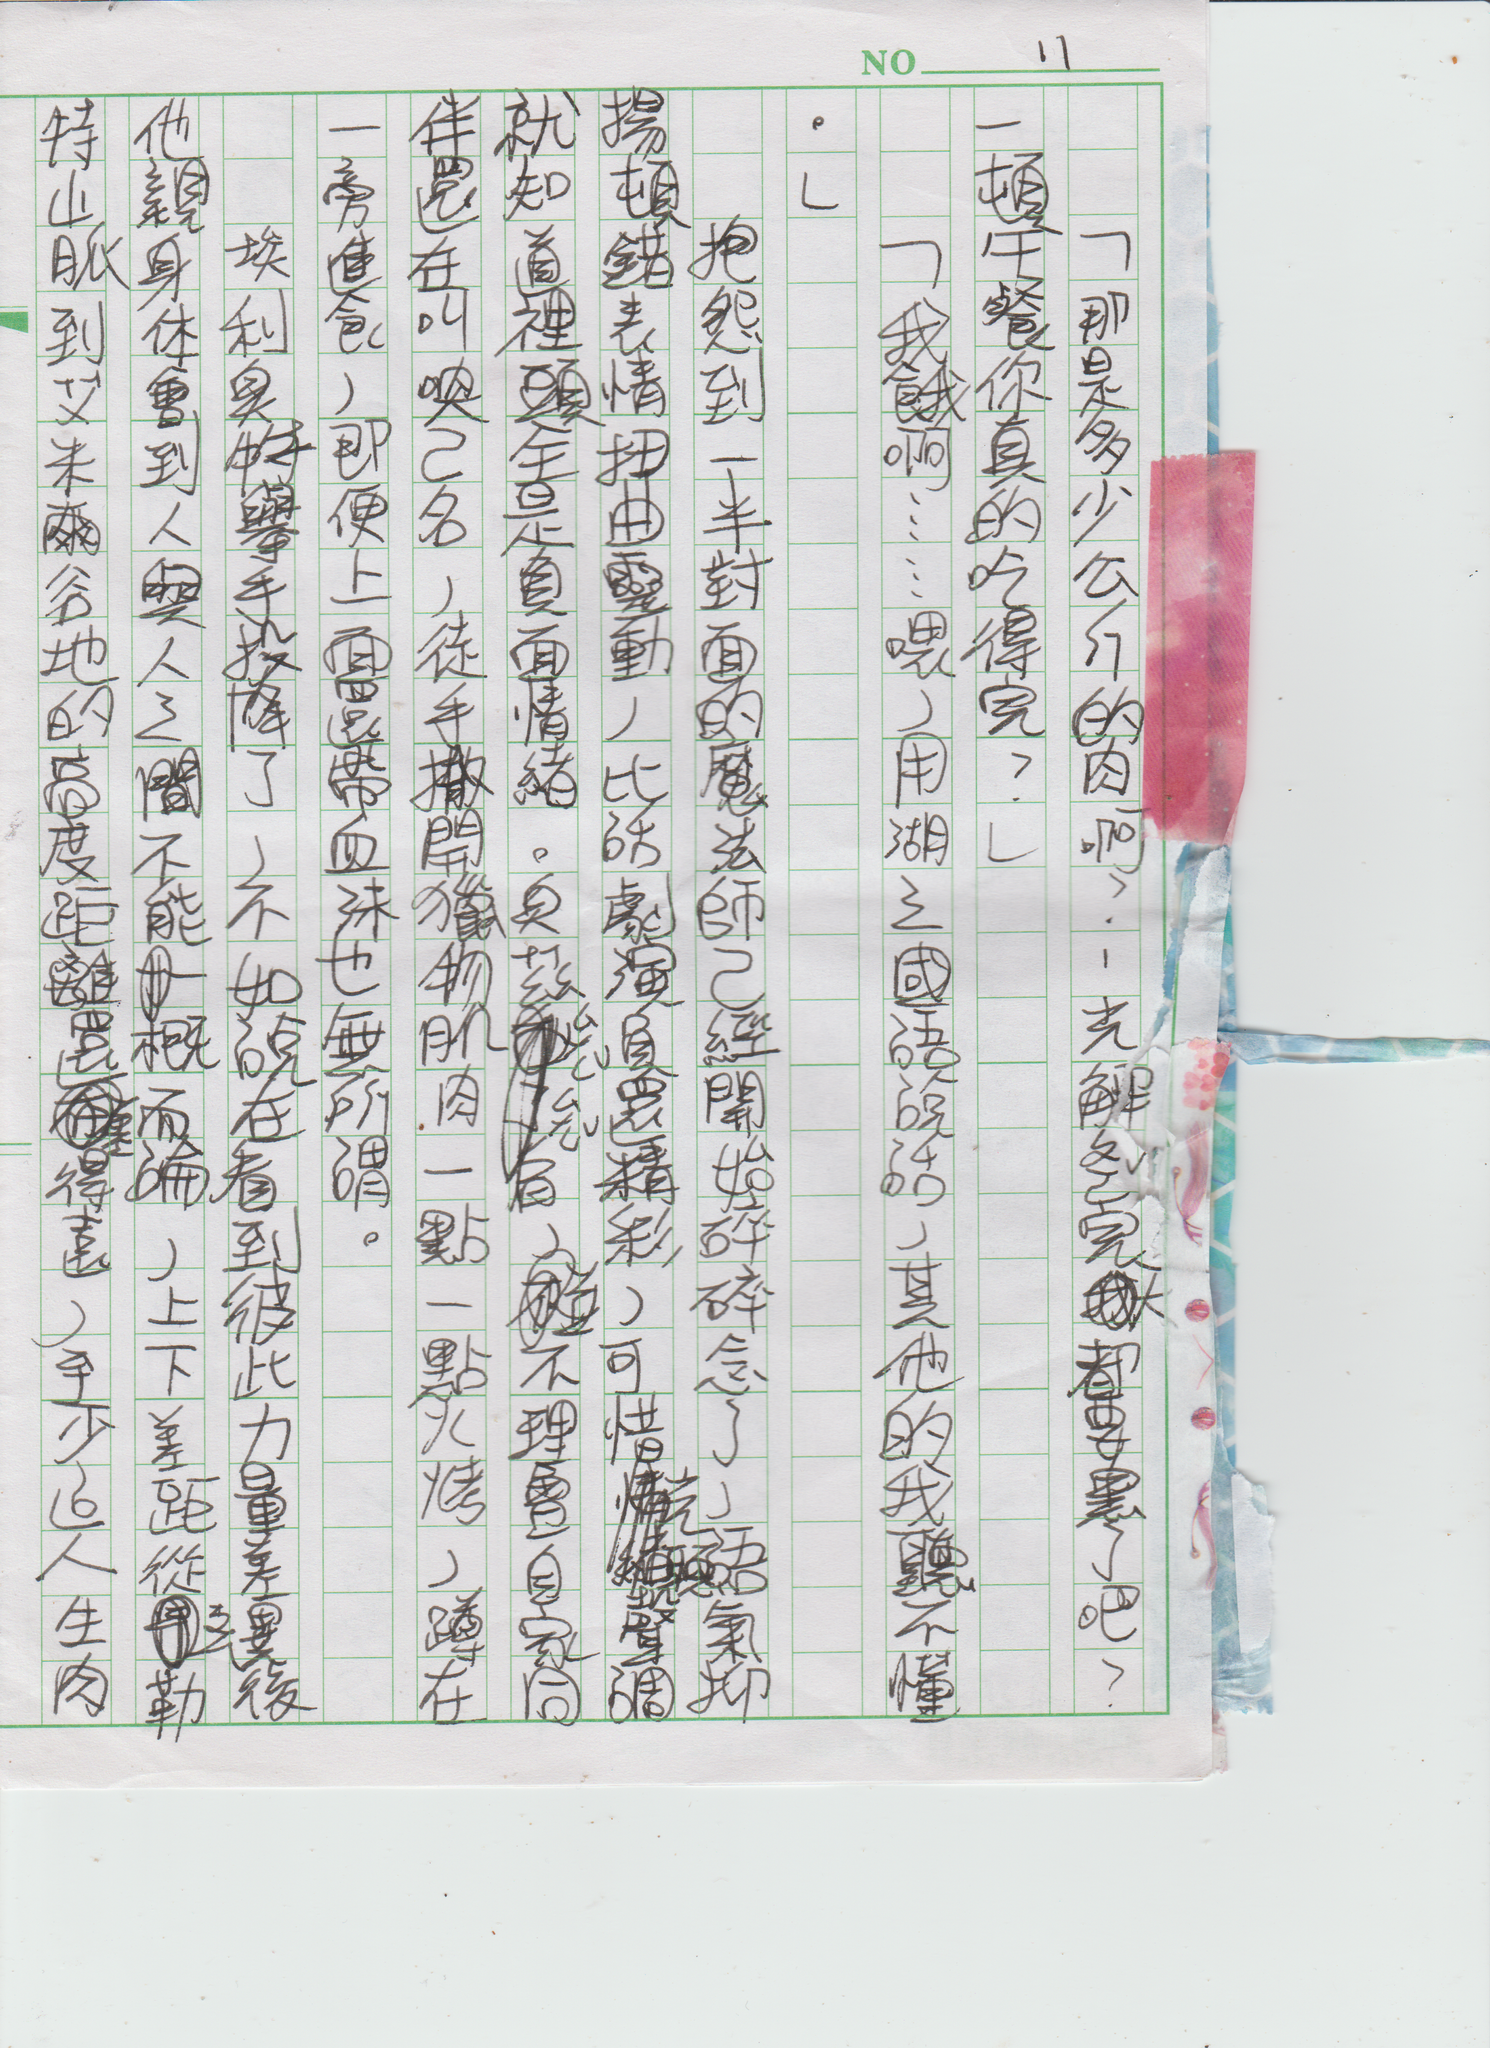 NO 11
「那是多少公斤的肉啊?!光解凍完天都要黑了吧?
一頓午餐你真的吃得完?」
「我餓啊……喂,用湖之國語說話,其他的我聽不懂
。」
抱怨到一半對面的魔法師已經開始碎碎念了,語氣抑
揚頓錯表情扭曲靈動,比話劇演員還精彩,可惜光聽聲調
就知道裡頭全是負面情緒。貝茲 眉, 不理會自家同
伴還在叫喚己名,徒手撒開獵物肌肉一點一點火烤,蹲在
一旁進食,即便上面還帶血絲也無所謂。
埃利奧特舉手投降了,不如說在看到彼此力量差異後
他親身体會到人與人之間不能一概而論,上下差距從 勒
特山脈到艾米爾谷地的高度距離還 得遠,手少這人生肉